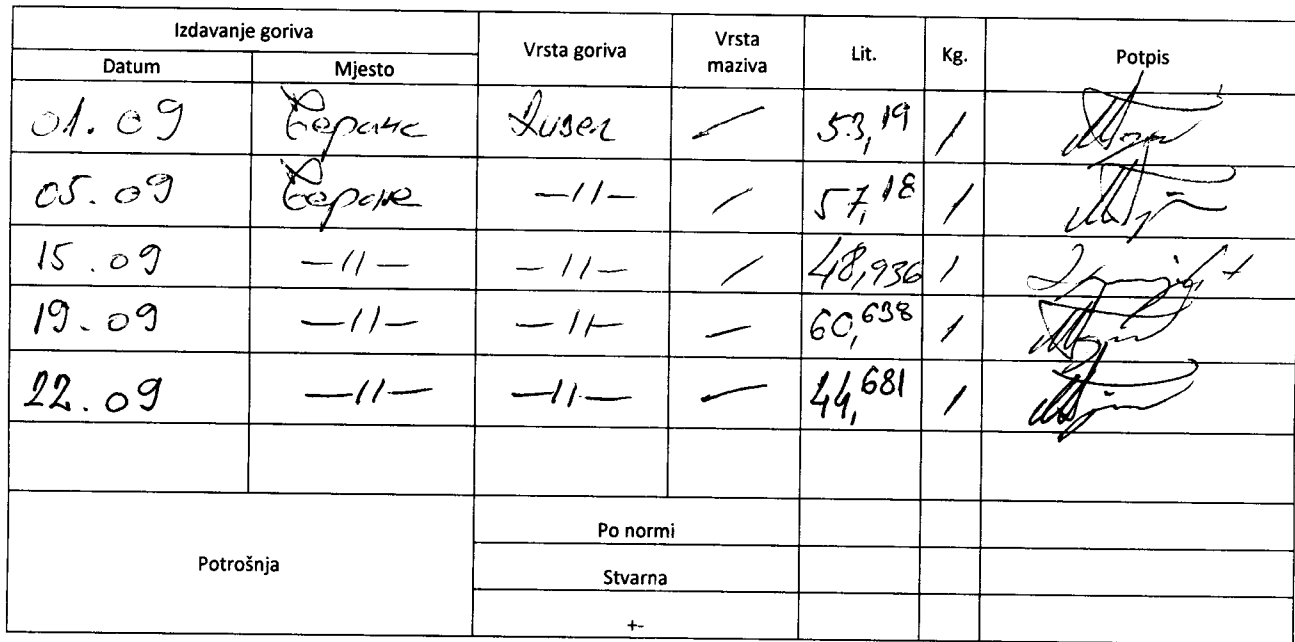 Izdavanje goriva Vrsta goriva Vrsta maziva Lit. Kg. Potpis
Datum Mjesto
01.09 Беране Дизел / 53,19 /
05.09 Беране -//- / 57,18 /
15.09 -//- -//- / 48,936 /
19.09 -//- -//- / 60,638 /
22.09 -//- -//- / 44,681 /
Potrošnja
Po normi
Stvarna
+-